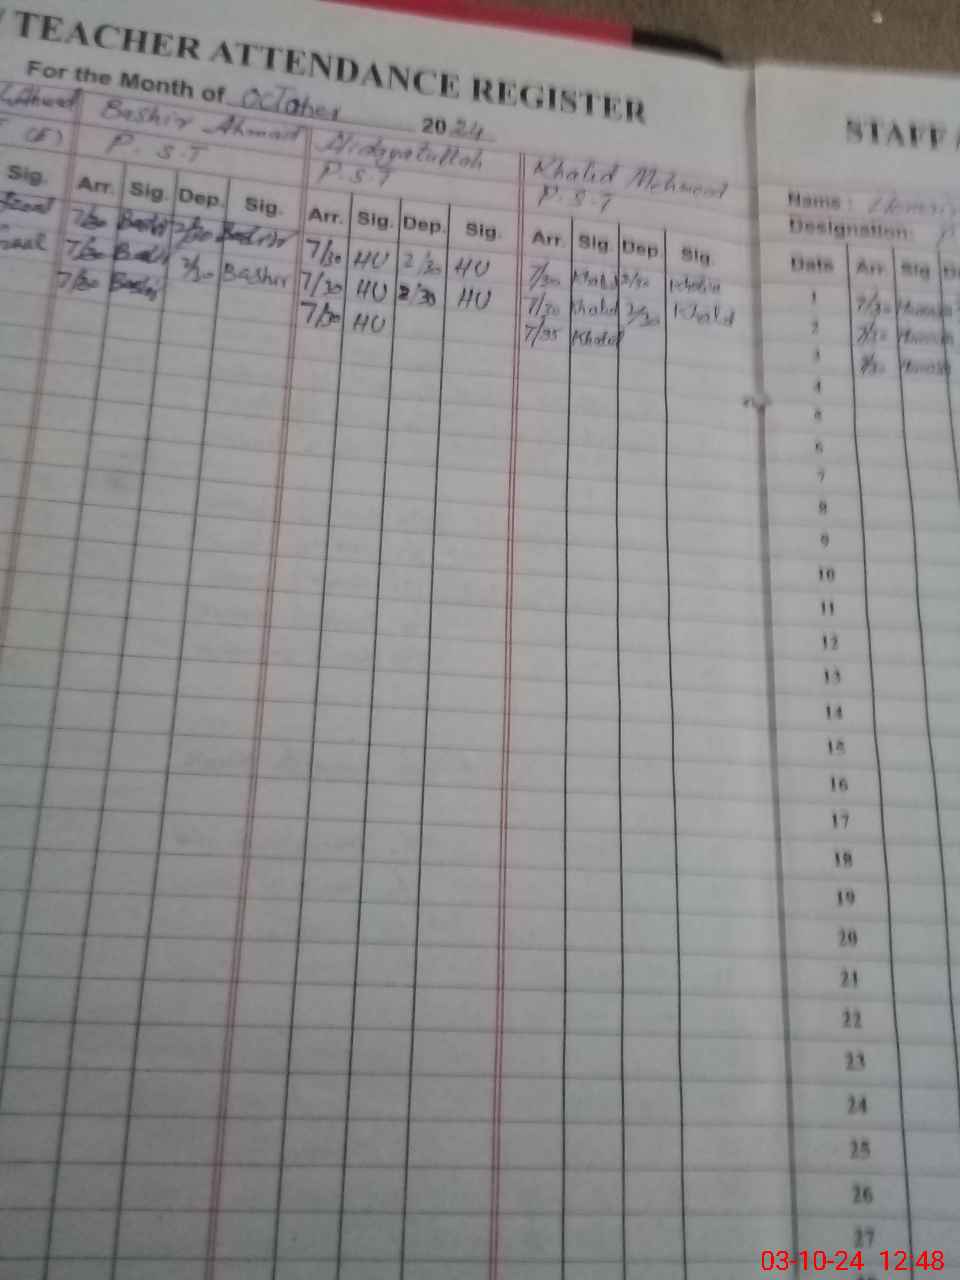 TEACHER ATTENDANCE REGISTER
For the Month of October 2024
Ahmad Bashir Ahmad Hidayatullah Khalid Mehmood
(E) P.S.T P.S.T P.S.T
Sig. Arr. Sig. Dep. Sig. Arr. Sig. Dep. Sig. Arr. Sig. Dep Sig.
7/30 Bashir 2/30 Bashir 7/30 HU 2/30 HU 7/30 Khalid 2/30 Khalid
7/30 Bashir 2/30 Bashir 7/30 HU 2/30 HU 7/30 Khalid 2/30 Khalid
7/30 Bashir 7/30 HU 7/35 Khalid
STAFF
Name:
Designation:
Date Arr. Sig.
1 7/30
2 7/30
3
4
5
6
7
8
9
10
11
12
13
14
15
16
17
18
19
20
21
22
23
24
25
26
27
03-10-24 12:48